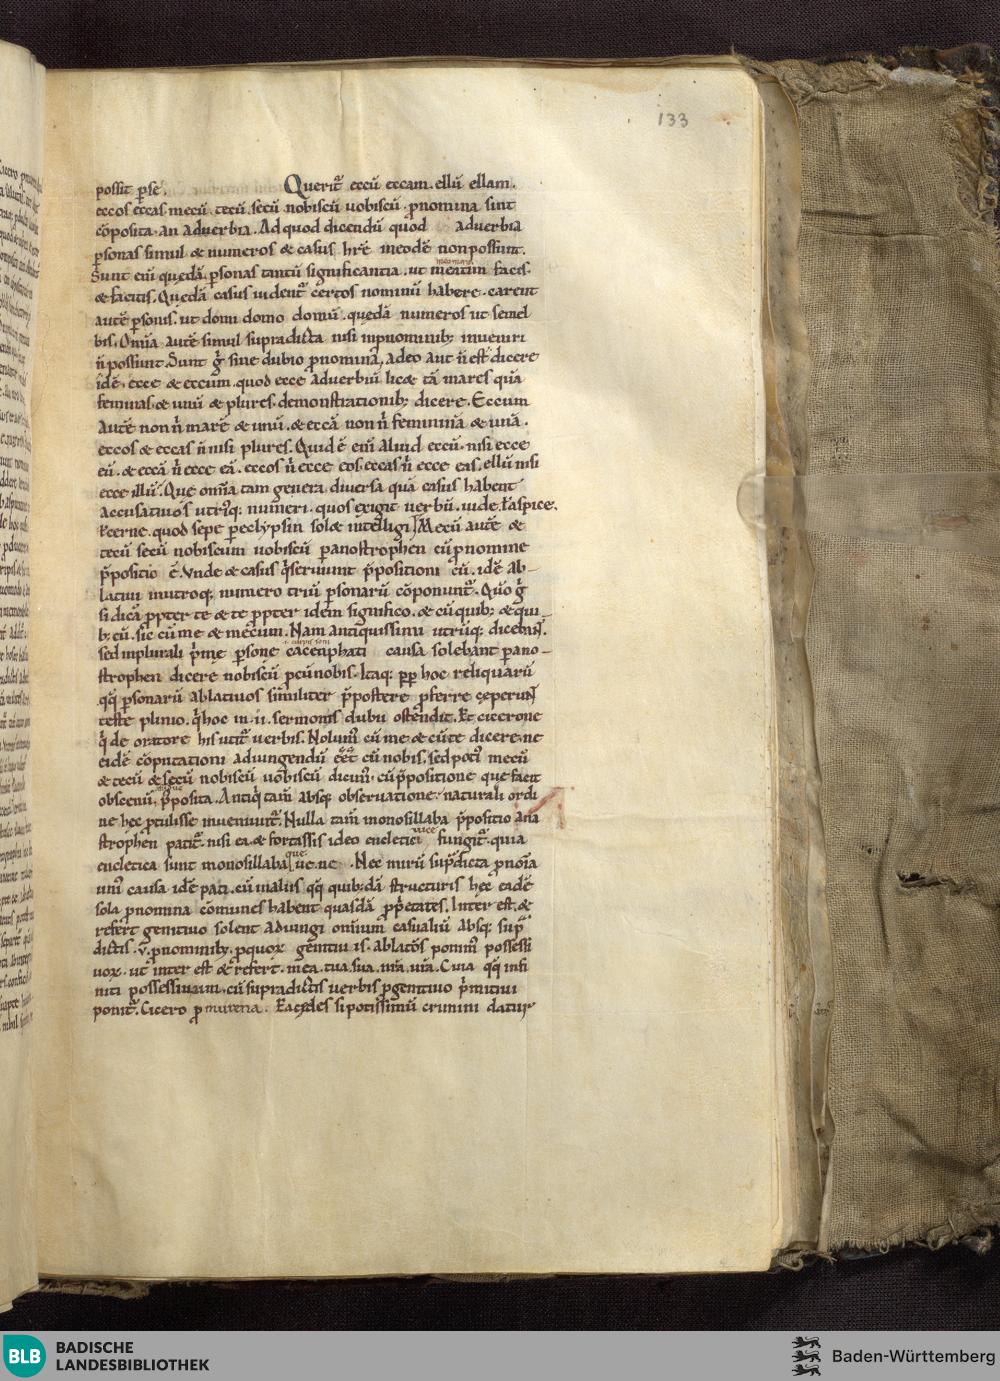 133
possit ꝑ se. Querit᷑ eccū eccam. ellū ellam.
eccos eccas mecū tecū. secū nobiscū uobiscū. ꝓnomina sint
cōposita. an aduerbia. Ad quod dicendū quod aduerbia
ꝑsonas simul & numeros & casus hr̄e ineodē non possunt.
Sunt eni quędā ꝑsonas tantū significantia. ut meatim facis.
& facitis. Quędā casus uident᷑ certos nominū habere. carent
autē ꝑsonis. ut domi domo domū. quędā numeros ut semel
bis. Om̄ia autē simul supradicta nisi inpronominib; inueniri
n̄ possunt. Sunt g̊ sine dubio ꝓnomina, adeo aut n̄ est dicere
idē. ecce & eccum. quod ecce aduerbiū lic& tā mares quā
feminas. & unū & plures. demonstrationib; dicere. Eccum
Autē non n̄ marē & unū. & eccā non n̄ femininā & unā.
eccos & eccas n̄ nisi plures. Quid ē eni Aliud eccū. nisi ecce
eū. & eccā n̄ ecce eā. eccos n̄ ecce eos. eccas n̄ ecce eas. ellū nisi
ecce illū. Que om̄ia tam genera diuersa quā casus habent
Accusatiuos utriq; numeri. quos exigit uerbū. uide. ł aspice.
ł cerne. quod sepe ꝑ eclypsin sol& intelligi. Mecū autē &
tecū secū nobiscum uobiscū ꝑ anostrophen cū ꝓnomine
p̄positio ē. Vnde & casus q̄ seruiunt p̄positioni cū. idē ab-
latiui inutroq; numero triū ꝑsonarū cōponunt᷑. Quo g̊
si dicā ꝓpter te & te ꝓpter idem significo. & cū quib; & qui-
b; cū. sic cū me & mecum. Nam antiquissimi utrūq; diceban̄t.
sed inplurali p̄mę ꝑsone cacenphati causa solebant ꝑ ano-
strophen dicere nobiscū ꝓ cū nobis. Itaq; ꝓp̄ hoc reliquarū
qq̄ ꝑsonarū ablatiuos similiter p̄postere ꝓferre ceperunt
teste plinio. q̄ hoc in .ii. sermonis dubii ostendit. Et cicerone
q̄ de oratore his utit᷑ uerbis. Nolum᷒ cū me & cū te dicere. ne
eidē cōputationi adiungendū e͞et cū nobis. sed poti᷒ mecū
& tecū & secū nobiscū uobiscū dicim᷒. cū p̄positione que facit
obscenū, p̄posita. Antiq̄ tam̄ absq; obseruatione naturali ordi
ne hec ꝓtulisse inueniunt᷑. Nulla tam̄ monosillaba p̄positio ana
strophen patit᷑. nisi ea. & fortassis ideo encletici uice fungit᷑. quia
encletica sunt monosillaba que ue. ne. Nec mirū sup̄dicta ꝓnōia
uni᷒ causa idē pati. cū in aliis qq̄ quib; dā structuris hec eadē
sola ꝓnomina cōmunes habent quasdā ꝓp̄etates. Inter est, &
refert genitiuo solent adiungi om̄ium casualiū absq; sup̄
dictis .v. ꝓnominib; ꝓ quoꝝ genitiuis. ablatos ponim᷒ possessi
uoꝝ. ut inter est & refert. mea. tua. sua. nr̄a. ur̄a. Cuia qq̄ infi
niti possessiuum, cū supradictis uerbis ꝓ genitiuo p̄mitiui
ponit᷑. Cicero ꝓ murena. Ea cędes si potissimū crimini datur
BLB BADISCHE
LANDESBIBLIOTHEK
Baden-Württemberg